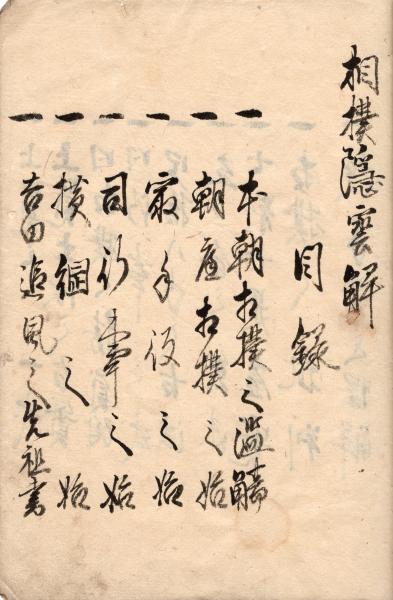 相撲隠雲解
目録
一 本朝相撲之濫觴
一 朝庭相撲之始
一 最手役之始
一 司行事之始
一 横綱之始
一 吉田追風之先祖書